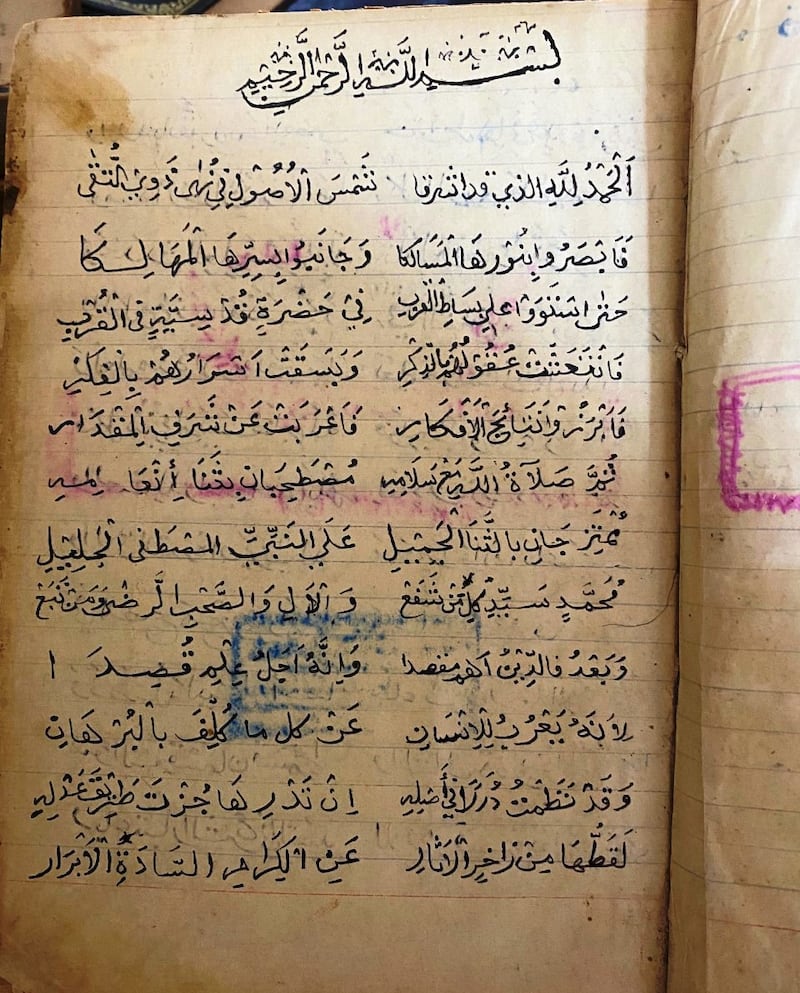 بسم الله الرحمن الرحيم
اَلْحَمْدُ لِلَّهِ الذي قد اشرقا شَمْسَ الْأُصُولِ فِي نُهَى ذَوِي التُّقَى
فَابْصَرُوا بِنُورِهَا الْمَسَالِكَا وَجَانَبُوا بِسِرِّهَا الْمَهَالِكَا
حَتَى اسْتَوَوْا عَلى بِسَاطِ الْقُرْبِ فِي حَضْرَةٍ قُدْسِيَّةٍ فى الْقُرْبِ
عُقُولُهُمْ بِالذِّكْرِ وَبَسَقَتْ اَسْرَارُهُمْ بِالْفِكْرِ
فَاَبْرَزَتْ نَتَائِجَ الْأَفْكَارِ فَاعْرَبَتْ عَنْ شَرَفِ الْمِقْدَارِ
ثُمَّ صَلَاةُ اللَّهِ مَعْ سَلَامِهِ مُصْطَحِبَانِ بِثَنَا إِنْعَامِهِ
بِالثَّنَا الْجَمِيلِ عَلَى النَّبِيِّ المصْطَفى الْجَلِيلِ
مُحَمَّدٍ سَيِّدِ كُلِّ مَنْ شَفَعْ وَالْآلِ وَالصَّحْبِ الرِّضَى وَمَنْ تَبَعْ
وَبَعْدُ فالدِّيْنُ اَهَم مقصدا وَاِنَّهُ اَجَلُّ عِلْمٍ قُصِدَا
لِاَنَّهُ يَعْرُبُ لِلْاِنْسَانِ عَنْ كل ما كُلِّفَ بالْبُرْهَانِ
وَقَدْ نَظَمْتُ دُرَرًا فِي أَصْلِهِ اِنْ تَدْرِهَا حُزْتَ طَرِيقَ عَدْلِهِ
لَقَطُّهَا مِنْ زَاخِرِ الْآثَارِ عَنِ الْكِرَامِ السَّادَةِ الْأَبْرَارِ